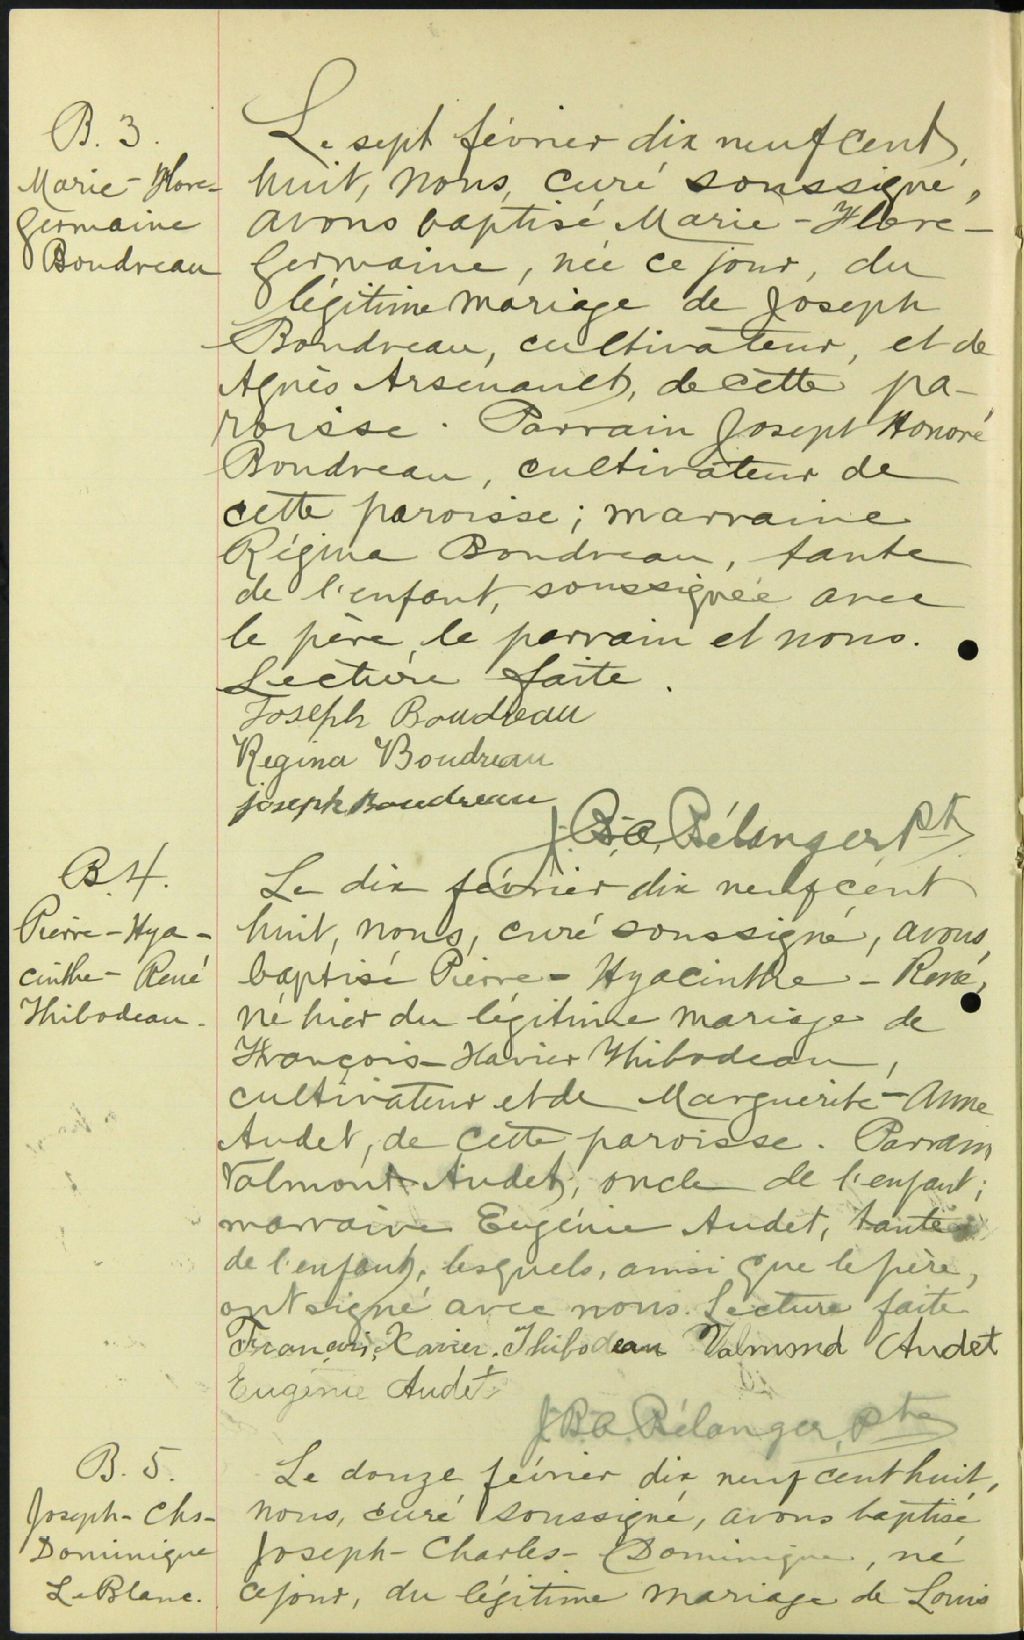 B. 3.
Marie-Flore-
Germaine
Boudreau
Le sept février dix neuf cent
huit, nous, curé soussigné,
avons baptisé Marie-Flore-
Germaine, née ce jour, du
légitime mariage de Joseph
Boudreau, cultivateur, et de
Agnès Arsenault, de cette pa-
roisse. Parrain Joseph Honoré
Boudreau, cultivateur de
cette paroisse; marraine
Régina Boudreau, tante
de l'enfant, soussignée avec
le père, le parrain et nous.
Lecture faite.
Joseph Boudreau
Regina Boudreau
joseph Boudreau
J. B. A. Bélanger, Ptre
B. 4.
Pierre-Hya-
cinthe-René
Thibodeau.
Le dix février dix neuf cent
huit, nous, curé soussigné, avons
baptisé Pierre-Hyacinthe-René,
né hier du légitime mariage de
François-Xavier Thibodeau,
cultivateur et de Marguerite-Anne
Audet, de cette paroisse. Parrain
Valmont Audet, oncle de l'enfant;
marraine Eugénie Audet, tante
de l'enfant, lesquels, ainsi que le père,
ont signé avec nous. Lecture faite
François Xavier Thibodeau Valmond Audet
Eugénie Audet
J. B. A. Bélanger, Ptre
B. 5.
Joseph-Chs-
Dominique
LeBlanc.
Le douze février dix neuf cent huit,
nous, curé soussigné, avons baptisé
Joseph-Charles-Dominique, né
ce jour, du légitime mariage de Louis